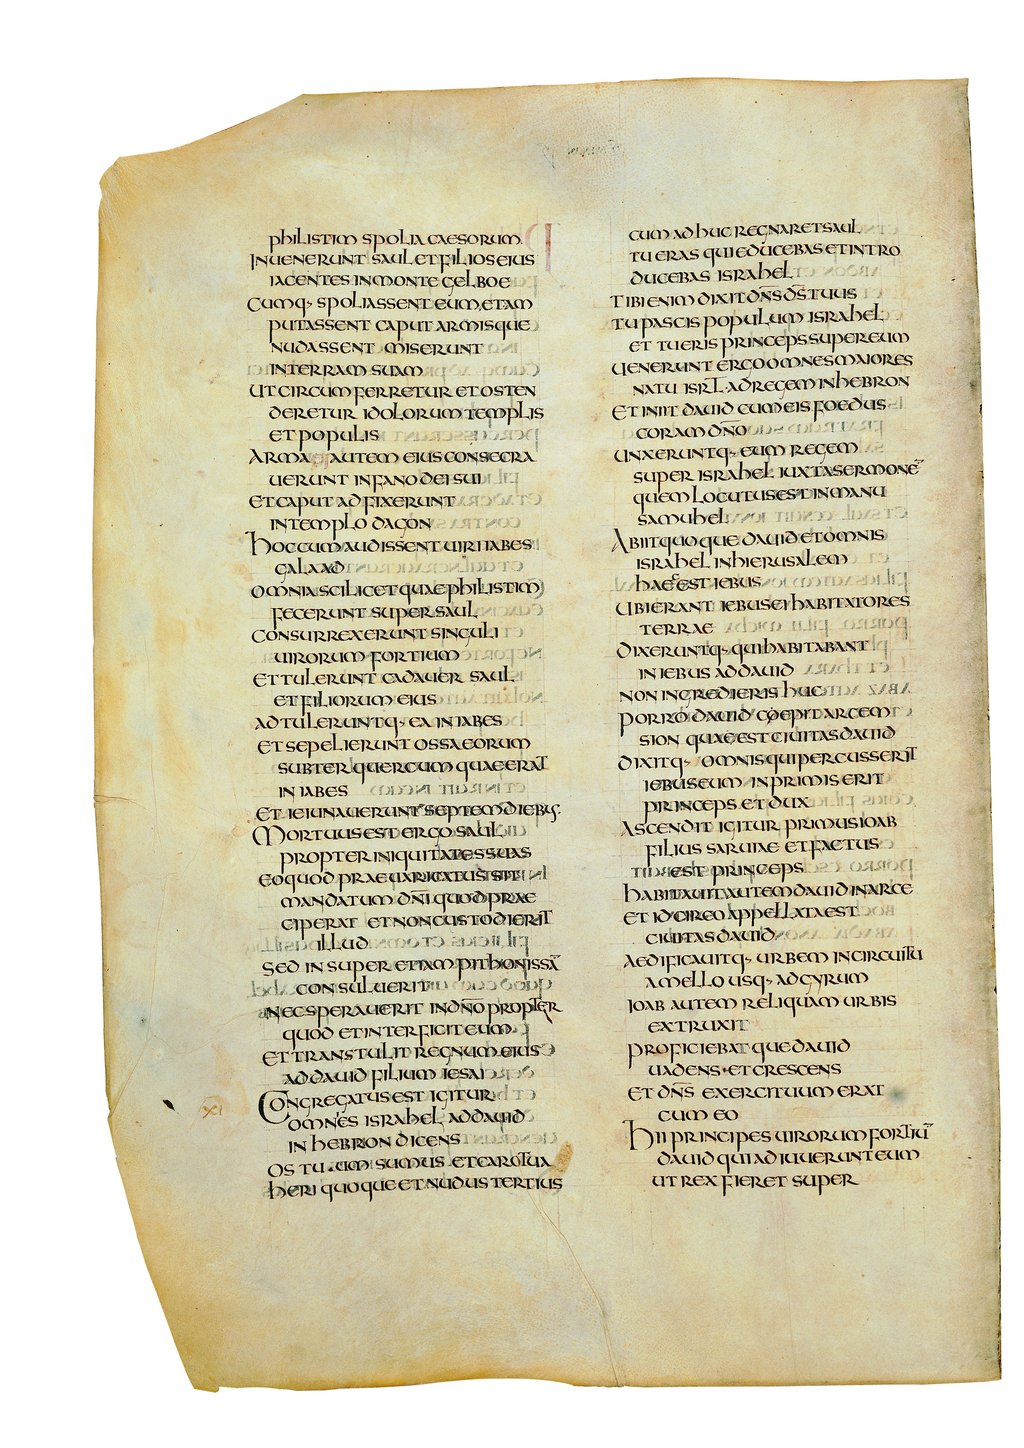 philistim spolia caesorum
inuenerunt saul et filios eius
iacentes in monte gelboe
cumq; spoliassent eum, etam
putassent caput armisque
nudassent miserunt
in terram suam
ut circumferretur et osten
deretur idolorum templis
et populis
arma autem eius consecra
uerunt in fano dei sui
et caput adfixerunt
in templo dagon
hoc cum audissent uiri iabes
galaad
omnia scilicet quae philistim
fecerunt super saul
consurrexerunt singuli
uirorum fortium
et tulerunt cadauer saul
et filiorum eius
adtuleruntq; ea in iabes
et sepelierunt ossa eorum
subter quercum quae erat
in iabes
et ieiunauerunt septem diebus;
Mortuus est ergo saul
propter iniquitates suas
eo quod praeuaricatus sit
mandatum dñi quod prae
ciperat et non custodierit
illud
sed insuper etiam pithonissā
consuluerit
nec sperauerit in dño propter
quod et interfecit eum
et transtulit regnum eius
ad dauid filium iesai
XI
Congregatus est igitur
omnes israhel ad dauid
in hebron dicens
os tuum sumus et caro tua
heri quoque et nudus tertius
cum adhuc regnaret saul
tu eras qui educebas et intro
ducebas israhel
tibi enim dixit dñs ds tuus
tu pascis populum israhel
et tu eris princeps super eum
uenerunt ergo omnes maiores
natu isrl ad regem in hebron
et iniit dauid cum eis foedus
coram dño
unxeruntq; eum regem
super israhel iuxta sermonē
quem locutus est in manu
samuhel
Abiit quoque dauid et omnis
israhel in hierusalem
haec est iebus
ubi erant iebusei habitatores
terrae
dixeruntq; qui habitabant
in iebus ad dauid
non ingredieris huc
porro dauid coepit arcem
sion quae est ciuitas dauid
dixitq; omnis qui percusserit
iebuseum in primis erit
princeps et dux
ascendit igitur primus ioab
filius saruiae et factus
est princeps
habitauit autem dauid in arce
et idcirco appellata est
ciuitas dauid
aedificauitq; urbem in circuitu
a mello usq; ad gyrum
ioab autem reliquam urbis
extruxit
proficiebatque dauid
uadens et crescens
et dñs exercituum erat
cum eo
hii principes uirorum fortiū
dauid qui adiuuerunt eum
ut rex fieret super